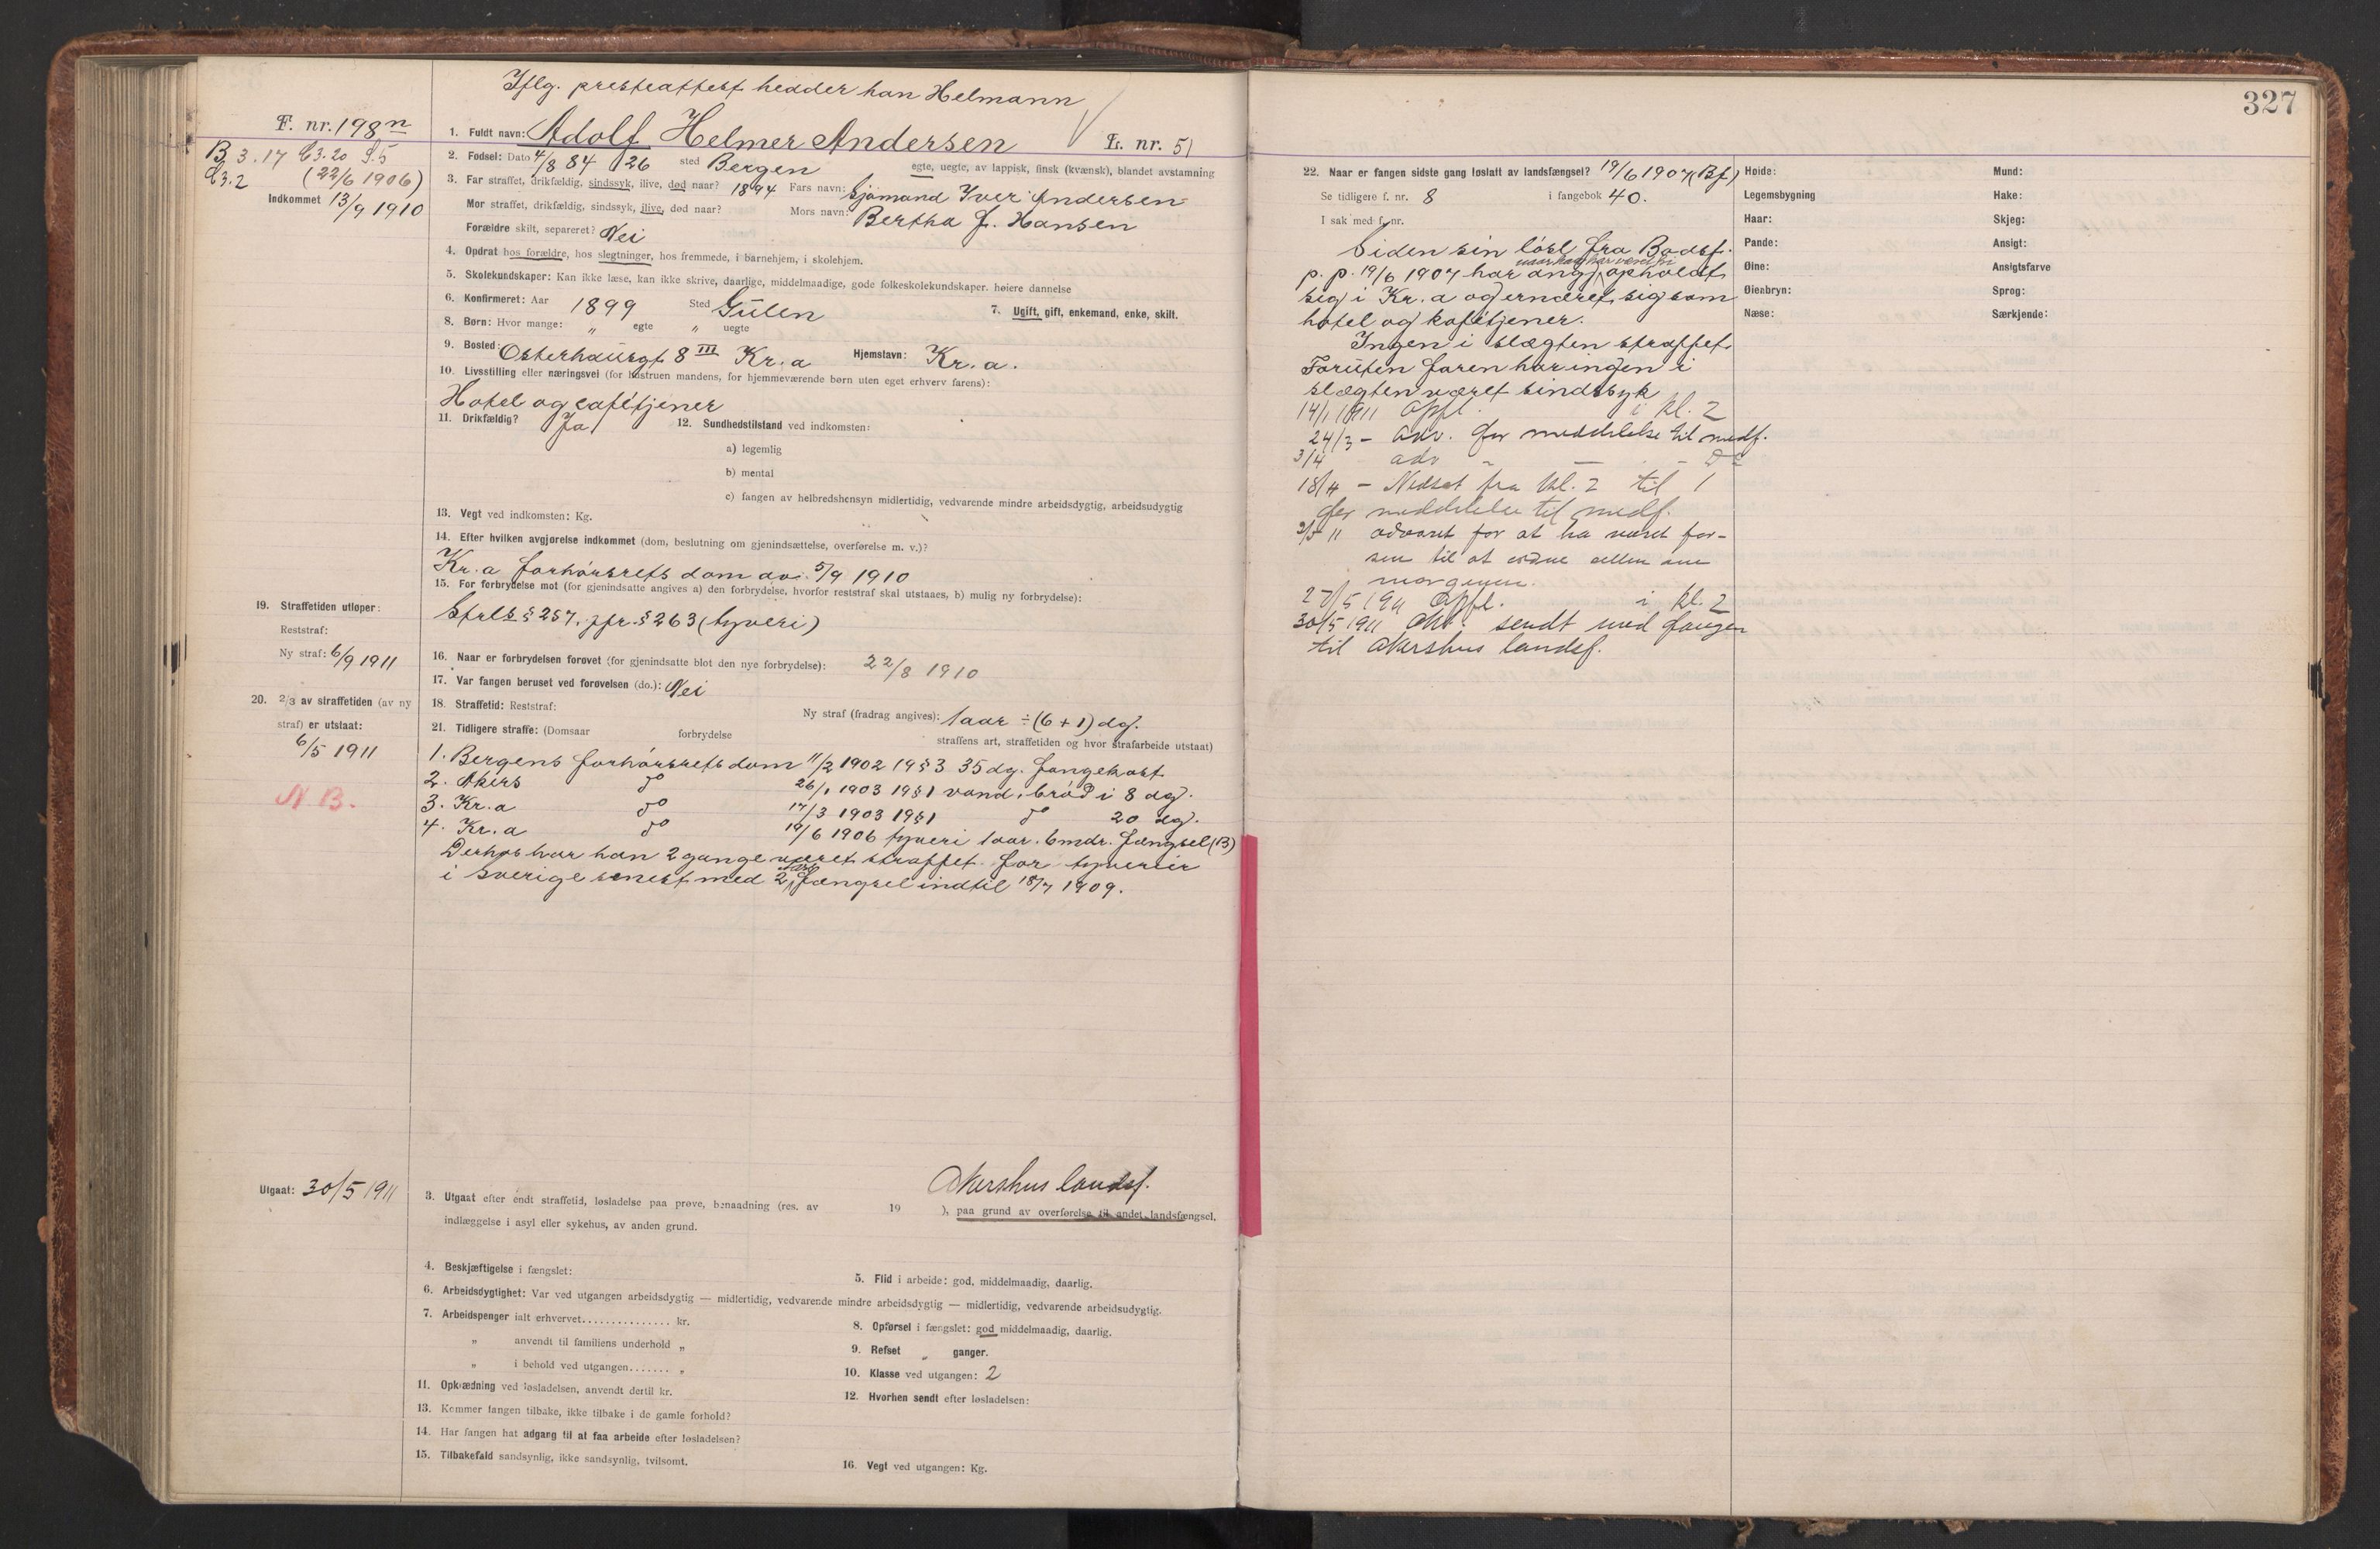 Iflg. presteattest hedder han Helmann
F. nr. 198n
1. Fuldt navn: Adolf Helmer Andersen L. nr. 51
B 3.17 C3.20 S.5
C3.2 (22/6 1906)
Indkommet 13/9 1910
2. Fødsel: Dato 4/8 84 26 sted Bergen egte, uegte, av lappisk, finsk (kvænsk), blandet avstamning
3. Far straffet, drikfældig, sindssyk, ilive, død naar? 1894 Fars navn: Sjømand Iver Andersen
Mor straffet, drikfældig, sindssyk, ilive, død naar? Mors navn: Bertha J. Hansen
Forældre skilt, separeret? Nei
4. Opdrat hos forældre, hos slegtninger, hos fremmede, i barnehjem, i skolehjem.
5. Skolekundskaper: Kan ikke læse, kan ikke skrive, daarlige, middelmaadige, gode folkeskolekundskaper. høiere dannelse
6. Konfirmeret: Aar 1899 Sted Gulen 7. Ugift, gift, enkemand, enke, skilt.
8. Børn: Hvor mange: " egte " uegte
9. Bosted: Osterhausgt 8 III Kr.a Hjemstavn: Kr.a.
10. Livsstilling eller næringsvei (for hustruen mandens, for hjemmeværende børn uten eget erhverv farens):
Hotel og cafétjener
11. Drikfældig? Ja 12. Sundhedstilstand ved indkomsten:
a) legemlig
b) mental
c) fangen av helbredshensyn midlertidig, vedvarende mindre arbeidsdygtig, arbeidsudygtig
13. Vegt ved indkomsten: Kg.
14. Efter hvilken avgjørelse indkommet (dom, beslutning om gjenindsættelse, overførelse m. v.)?
Kr.a forhørsrets dom av 5/9 1910
15. For forbrydelse mot (for gjenindsatte angives a) den forbrydelse, hvorfor reststraf skal utstaaes, b) mulig ny forbrydelse):
Strls § 257, jfr. § 263 (tyveri)
19. Straffetiden utløper:
Reststraf:
Ny straf: 6/9 1911
16. Naar er forbrydelsen forøvet (for gjenindsatte blot den nye forbrydelse): 22/8 1910
17. Var fangen beruset ved forøvelsen (do.): Nei
20. 2/3 av straffetiden (av ny
straf) er utstaat:
6/5 1911
N.B.
18. Straffetid: Reststraf: Ny straf (fradrag angives): 1 aar ÷ (6 + 1) dg.
21. Tidligere straffe: (Domsaar forbrydelse straffens art, straffetiden og hvor strafarbeide utstaat)
1. Bergens forhørsrets dom 11/2 1902 19 § 3 35 dg. fangekost
2. Akers do 26/1 1903 19 § 1 vand, brød i 8 dg.
3. Kr.a do 17/3 1903 19 § 1 do 20 dg.
4. Kr.a do 19/6 1906 tyveri 1 aar. 6 mdr. fængsel (B)
Derhos har han 2 gange været straffet for tyverier
i Sverige senest med 2 aars fængsel indtil 18/7 1909.
Utgaat: 30/5 1911
Akershus landsf.
3. Utgaat efter endt straffetid, løsladelse paa prøve, benaadning (res. av 19 ), paa grund av overførelse til andet landsfængsel,
indlæggelse i asyl eller sykehus, av anden grund.
4. Beskjæftigelse i fængslet:
5. Flid i arbeide: god, middelmaadig, daarlig.
6. Arbeidsdygtighet: Var ved utgangen arbeidsdygtig — midlertidig, vedvarende mindre arbeidsdygtig — midlertidig, vedvarende arbeidsudygtig.
7. Arbeidspenger ialt erhvervet............... kr.
" anvendt til familiens underhold "
" i behold ved utgangen....... "
8. Opførsel i fængslet: god middelmaadig, daarlig.
9. Refset " ganger.
10. Klasse ved utgangen: 2
11. Opklædning ved løsladelsen, anvendt dertil kr.
12. Hvorhen sendt efter løsladelsen:
13. Kommer fangen tilbake, ikke tilbake i de gamle forhold?
14. Har fangen hat adgang til at faa arbeide efter løsladelsen?
15. Tilbakefald sandsynlig, ikke sandsynlig, tvilsomt.
16. Vegt ved utgangen: Kg.
327
22. Naar er fangen sidste gang løslatt av landsfængsel? 19/6 1907 (Bf)
Se tidligere f. nr. 8 i fangebok 40.
I sak med f. nr.
Siden sin løsl. fra Bodsf.
p. p. 19/6 1907 har ang. naar han har været fri opholdt
sig i Kr.a og ernæret sig som
hotel og kafétjener.
Ingen i slægten straffet.
Foruten faren har ingen i
slægten været sindssyk
14/1 1911 Opfl. i kl. 2
24/3 – Adv. for meddelelse til medf.
3/4 adv – – – do
18/4 – Nedsat fra kl. 2 til 1
for meddelelse til medf.
2/5 11 advaret for at ha været for-
sen til at ordne cellen om
morgenen.
27/5 1911 Opfl. i kl. 2
30/5 1911 Akt. sendt med fangen
til Akershus landsf.
Høide:
Legemsbygning
Haar:
Pande:
Øine:
Øienbryn:
Næse:
Mund:
Hake:
Skjeg:
Ansigt:
Ansigtsfarve
Sprog:
Særkjende: